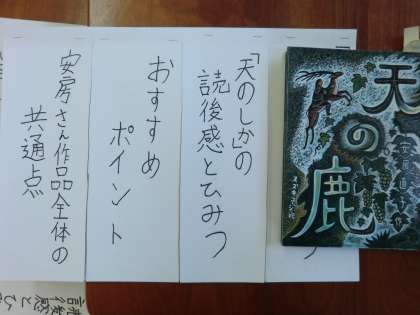 「天のしか」の
読後感とひみつ
おすすめ
ポイント
安房さん作品全体の
共通点
天の鹿